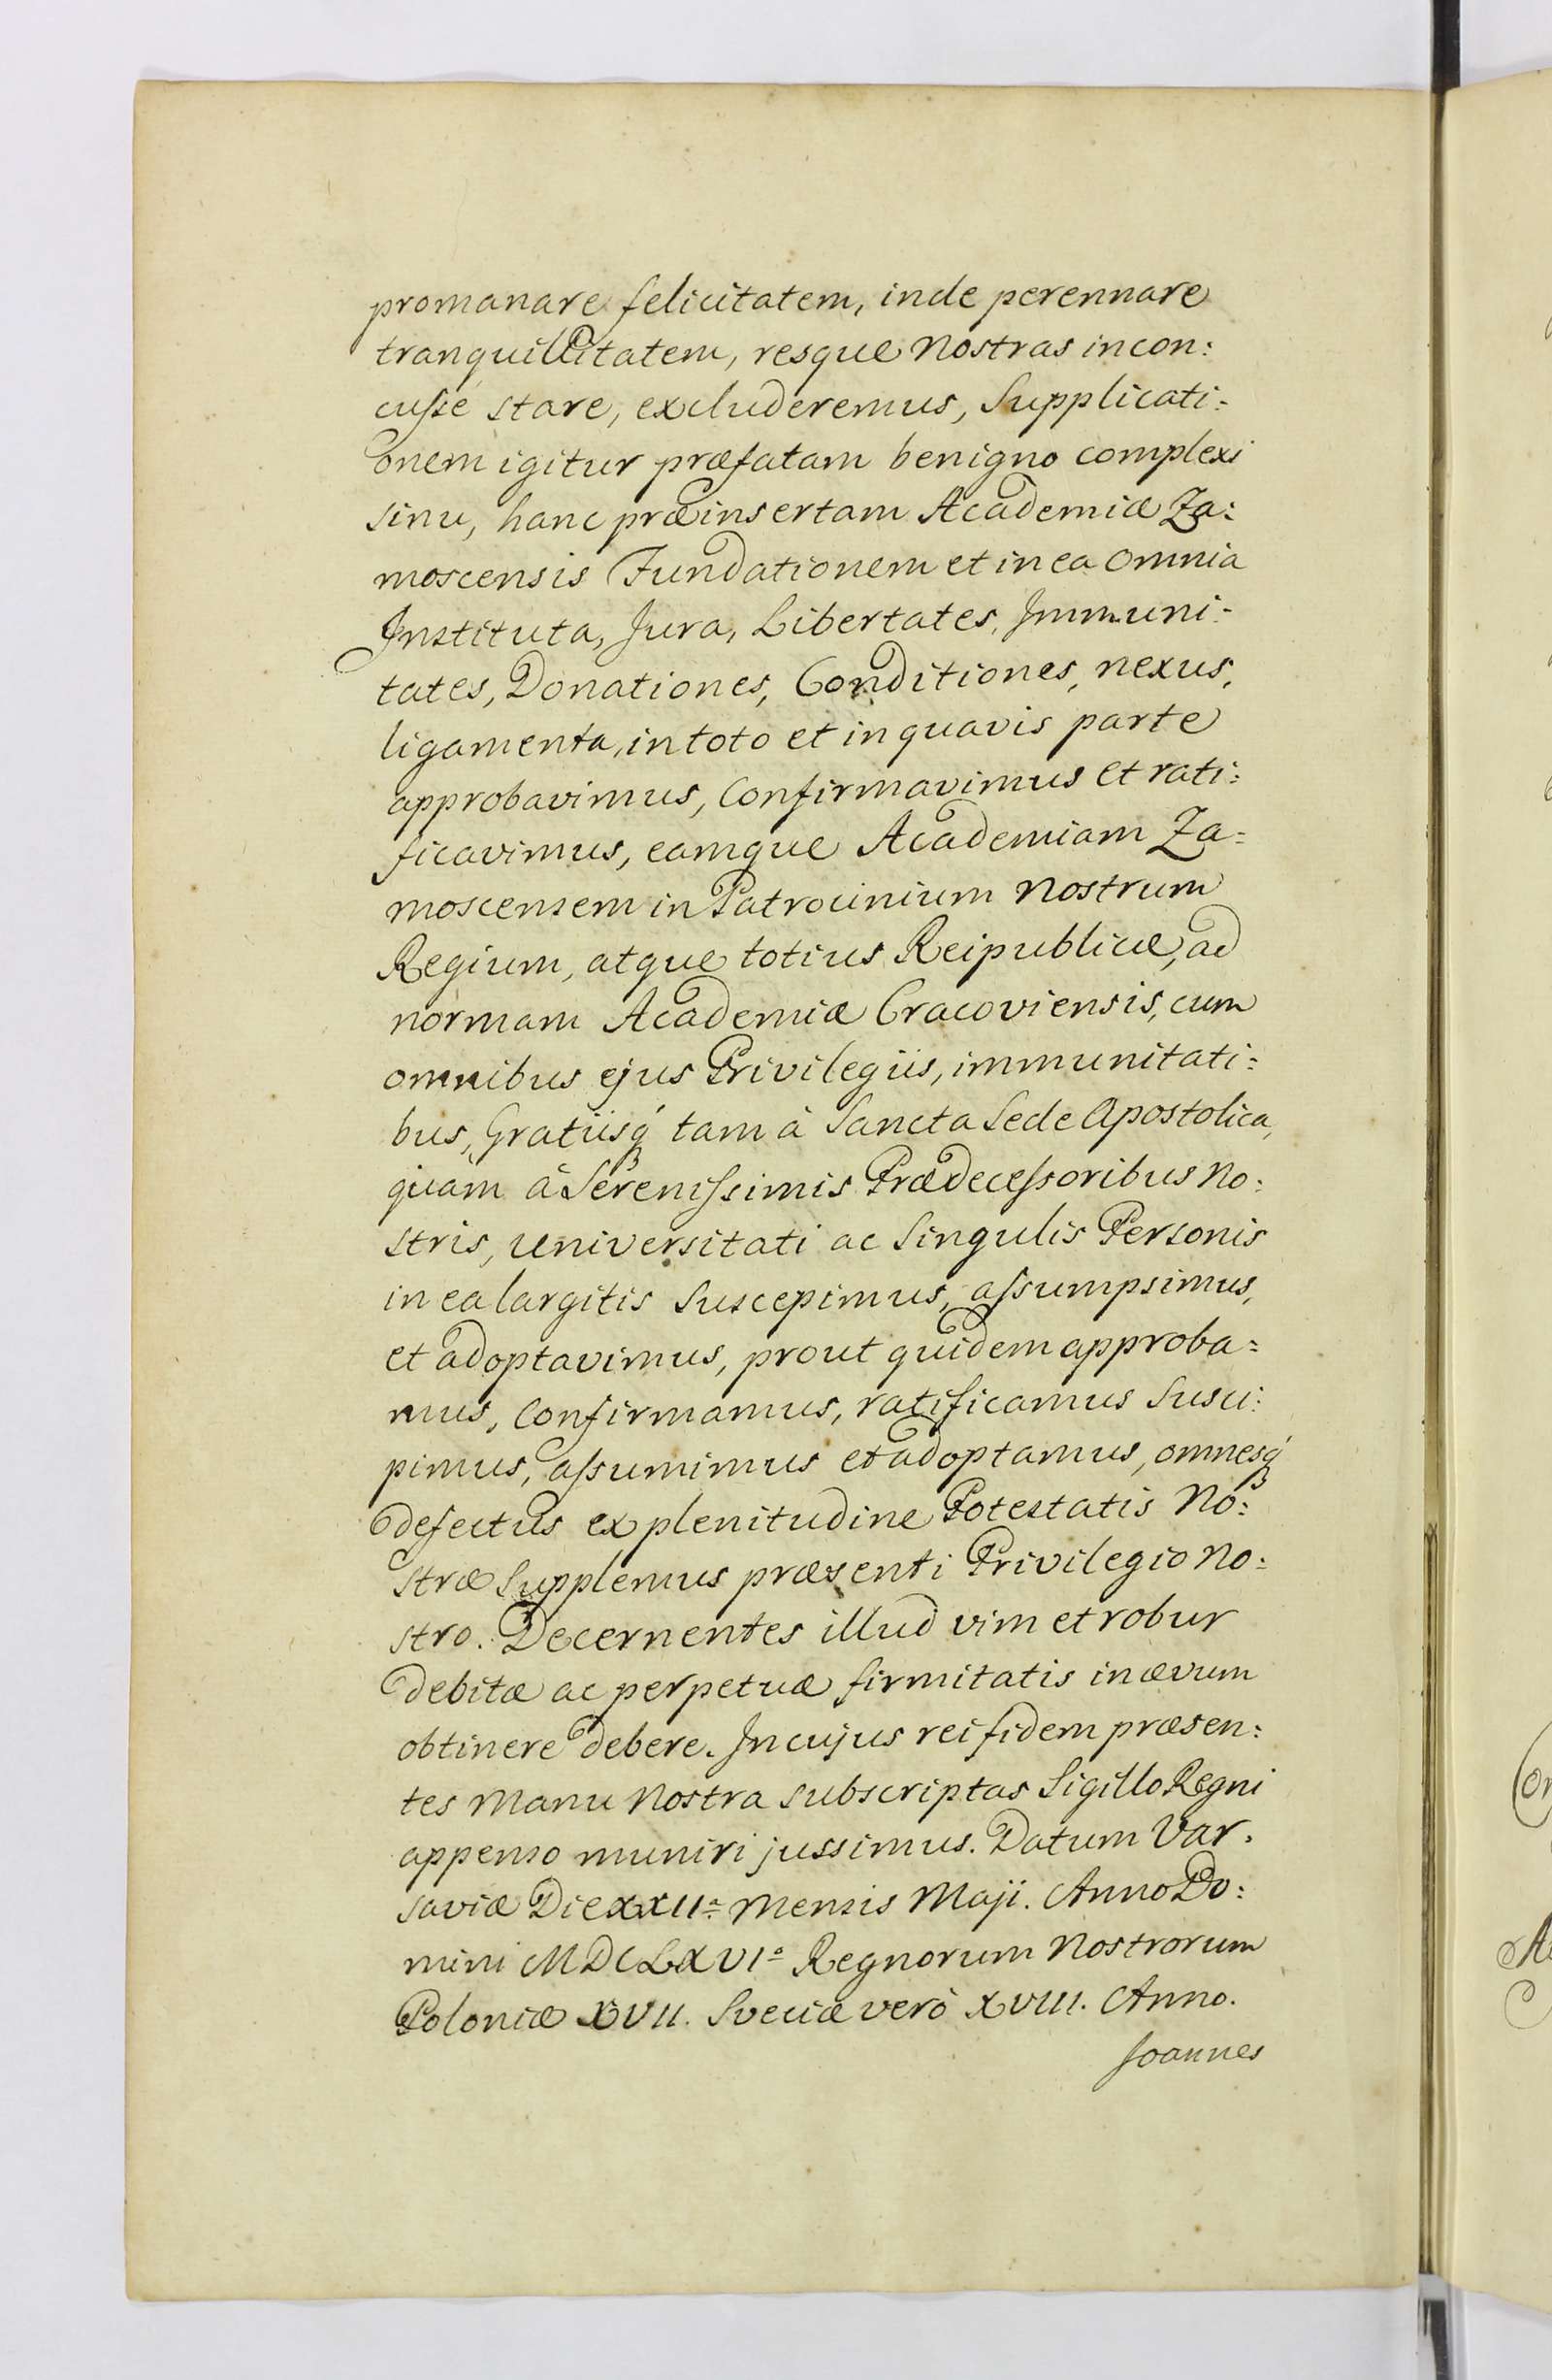 promanare felicitatem, inde perennare
tranquillitatem, resque Nostras incon:
cusse stare, excluderemus, Supplicati:
onem igitur præfatam benigno complexi
sinu, hanc præinsertam Academiæ Za:
moscensis Fundationem et in ea omnia
Instituta, Jura, Libertates, Immuni:
tates, Donationes, Conditiones, nexus,
ligamenta, in toto et in quavis parte
approbavimus, Confirmavimus et rati:
ficavimus, eamque Academiam Za=
moscensem in Patrocinium Nostrum
Regium, atque totius Reipublicæ, ad
normam Academiæ Cracoviensis, cum
omnibus ejus Privilegiis, immunitati:
bus, Gratiisq́ tam à Sancta Sede Apostolica,
quàm à Serenissimis Prædecessoribus No:
stris, Universitati ac Singulis Personis
in ea largitis Suscepimus, assumpsimus,
et adoptavimus, prout quidem approba=
mus, Confirmamus, ratificamus Susci:
pimus, assumimus et adoptamus, omnesq́
defectus ex plenitudine Potestatis No:
stræ Supplemus præsenti Privilegio No:
stro. Decernentes illud vim et robur
debitæ ac perpetuæ firmitatis in ævum
obtinere debere. In cujus rei fidem præsen:
tes Manu Nostra subscriptas Sigillo Regni
appenso muniri jussimus. Datum Var.
saviæ Die XXIIª Mensis Maji. Anno Do:
mini MDCLXVIº Regnorum Nostrorum
Poloniæ XVII. Sveciæ verò XVIII. Anno.
Joannes